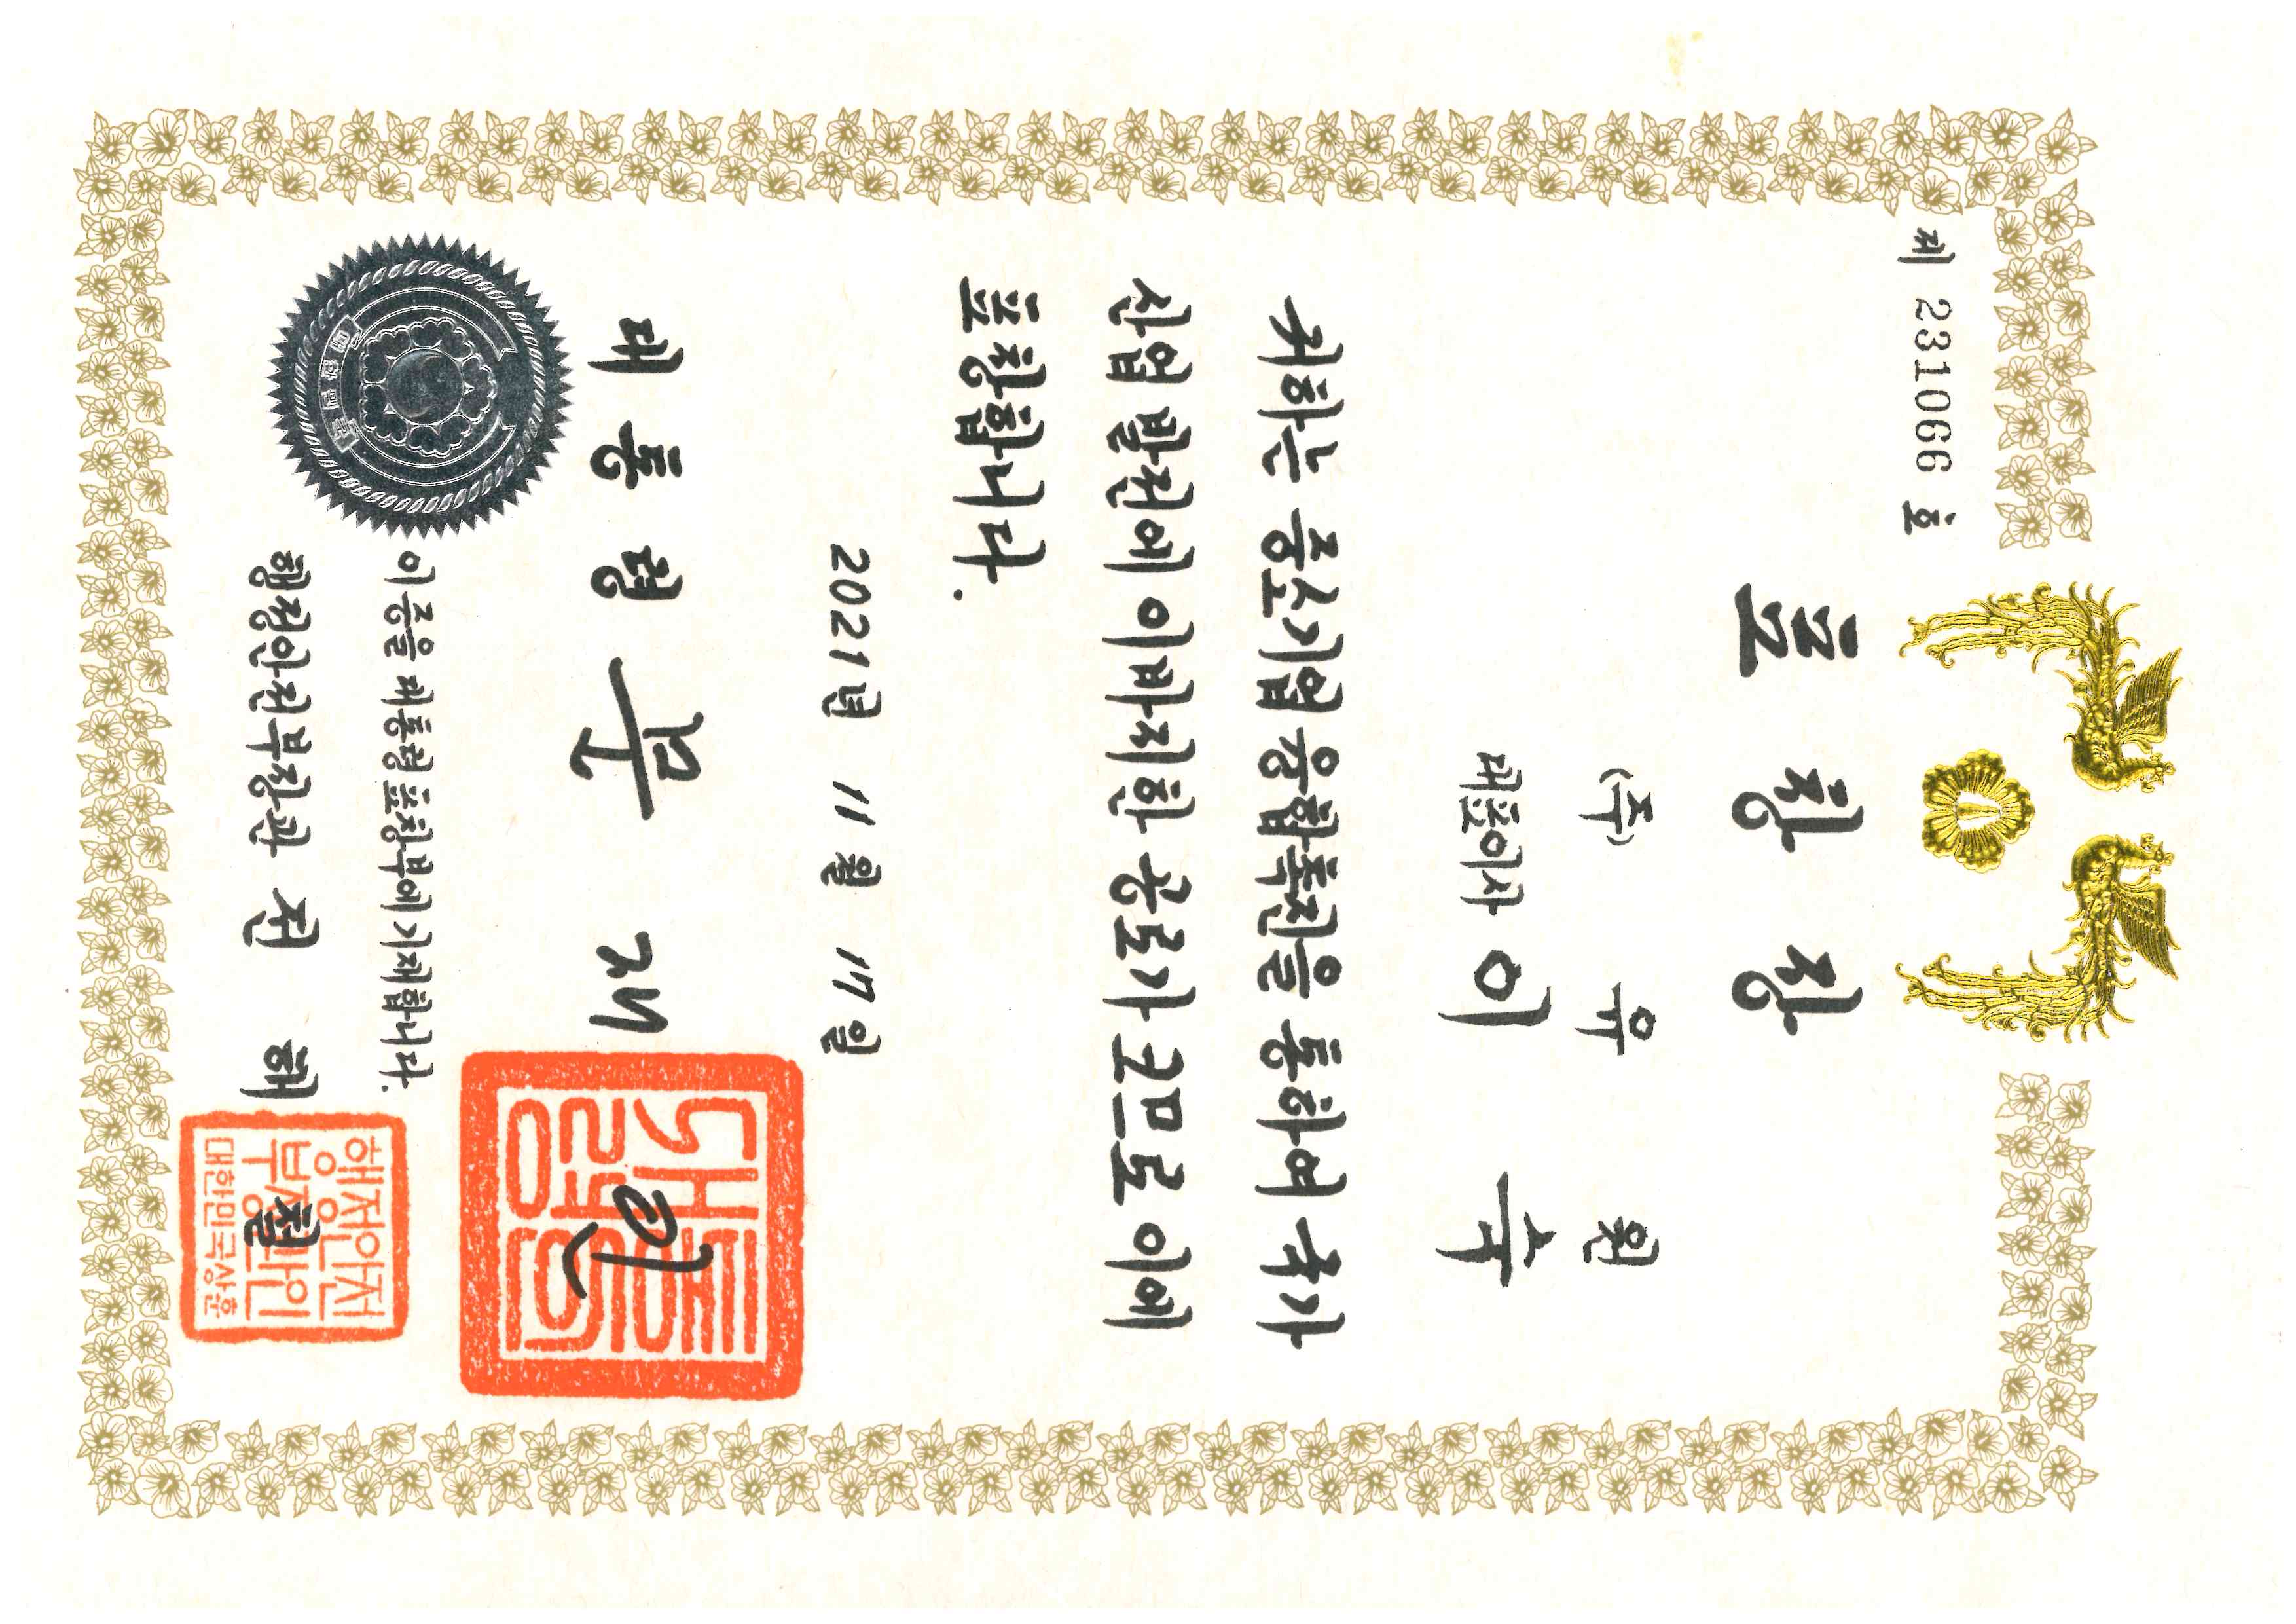 제 231066 호
표창장
(주) 유원
대표이사 이숙
귀하는 중소기업 융합촉진을 통하여 국가
산업 발전에 이바지한 공로가 크므로 이에
표창합니다.
2021년 11월 17일
대통령 문재인
이 증을 대통령표창부에 기재합니다.
행정안전부장관 전해철
대통령인
행정안전부장관인
대한민국상훈